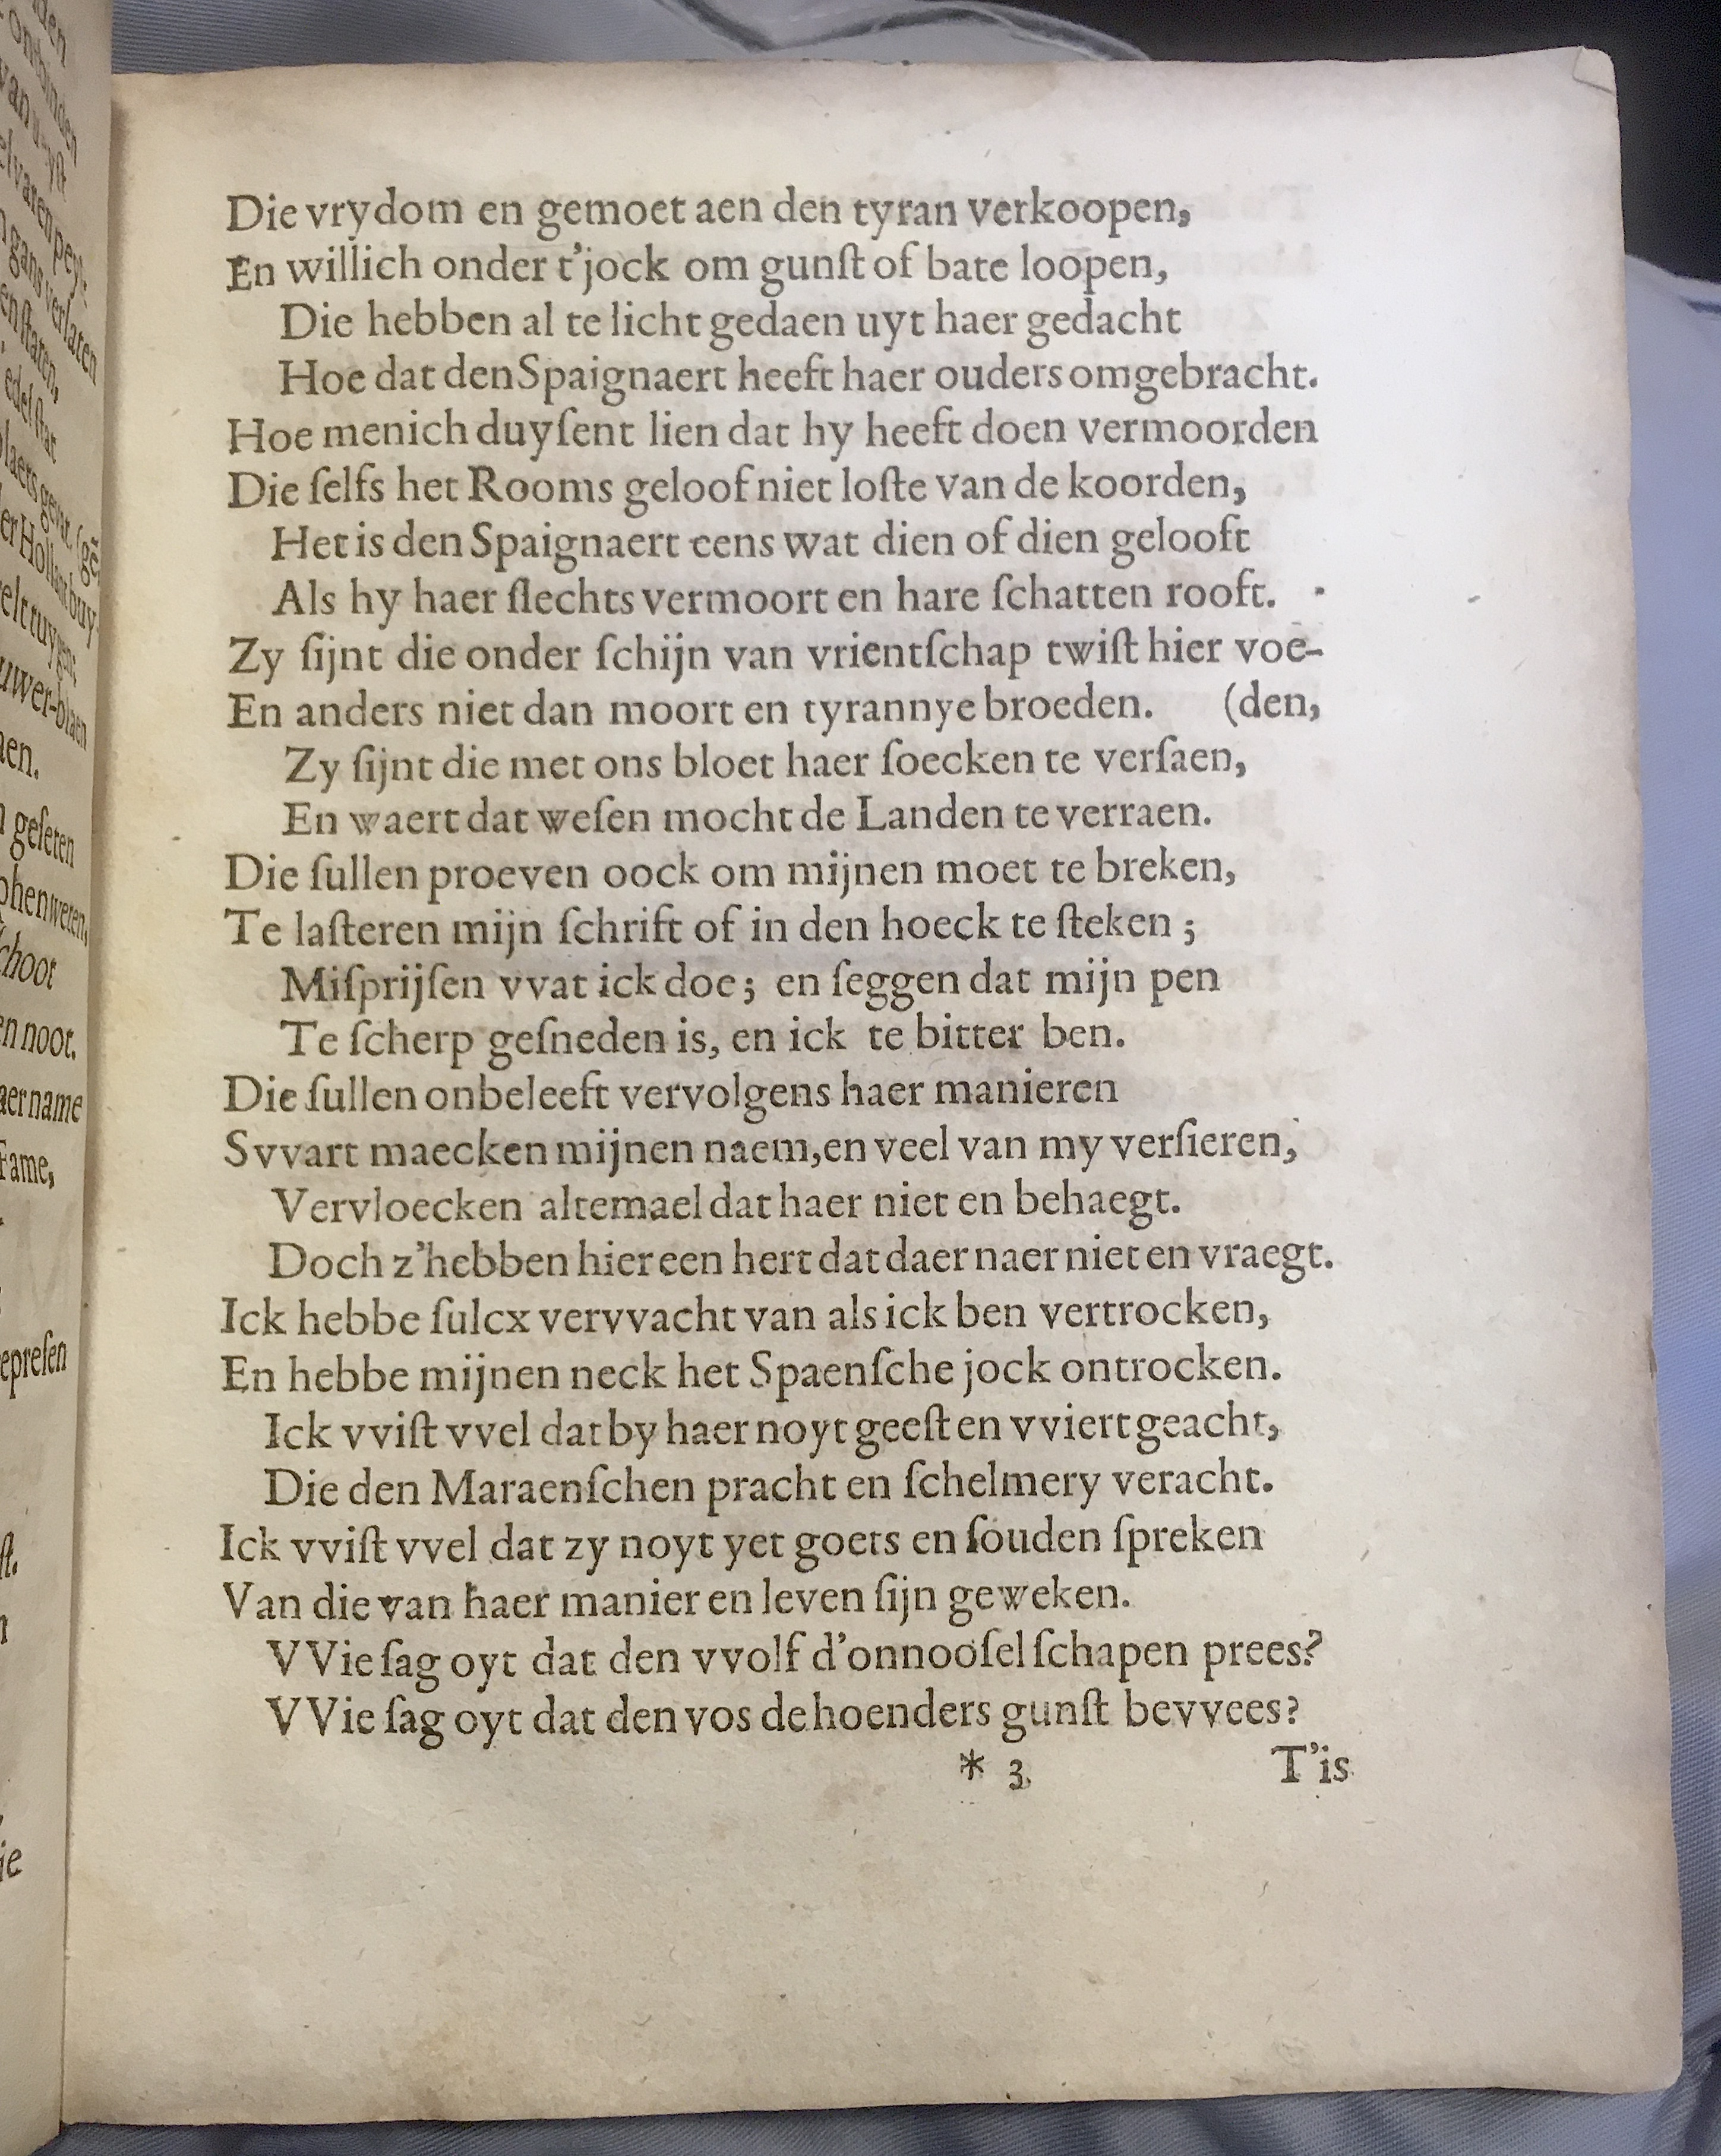 Die vrydom en gemoet aen den tyran verkoopen,
En willich onder t'jock om gunſt of bate loopen,
Die hebben al te licht gedaen uyt haer gedacht
Hoe dat den Spaignaert heeft haer ouders omgebracht.
Hoe menich duyſent lien dat hy heeft doen vermoorden
Die ſelfs het Rooms geloof niet loſte van de koorden,
Het is den Spaignaert eens wat dien of dien gelooft
Als hy haer ſlechts vermoort en hare ſchatten rooft.
Zy ſijnt die onder ſchijn van vrientſchap twiſt hier voe-
En anders niet dan moort en tyrannye broeden. (den,
Zy ſijnt die met ons bloet haer ſoecken te verſaen,
En waert dat weſen mocht de Landen te verraen.
Die ſullen proeven oock om mijnen moet te breken,
Te laſteren mijn ſchrift of in den hoeck te ſteken;
Miſprijſen vvat ick doe; en ſeggen dat mijn pen
Te ſcherp geſneden is, en ick te bitter ben.
Die ſullen onbeleeft vervolgens haer manieren
Svvart maecken mijnen naem, en veel van my verſieren,
Vervloecken altemael dat haer niet en behaegt.
Doch z'hebben hier een hert dat daer naer niet en vraegt.
Ick hebbe ſulcx vervvacht van als ick ben vertrocken,
En hebbe mijnen neck het Spaenſche jock ontrocken.
Ick vviſt vvel dat by haer noyt geeſt en vviert geacht,
Die den Maraenſchen pracht en ſchelmery veracht.
Ick vviſt vvel dat zy noyt yet goets en ſouden ſpreken
Van die van haer manier en leven ſijn geweken.
VVie ſag oyt dat den vvolf d'onnooſel ſchapen prees?
VVie ſag oyt dat den vos de hoenders gunſt bevvees?
* 3 T'is